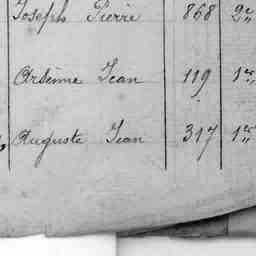 Joseph Pierre 868 2e
Arsène Jean 119 1er
Auguste Jean 317 1er